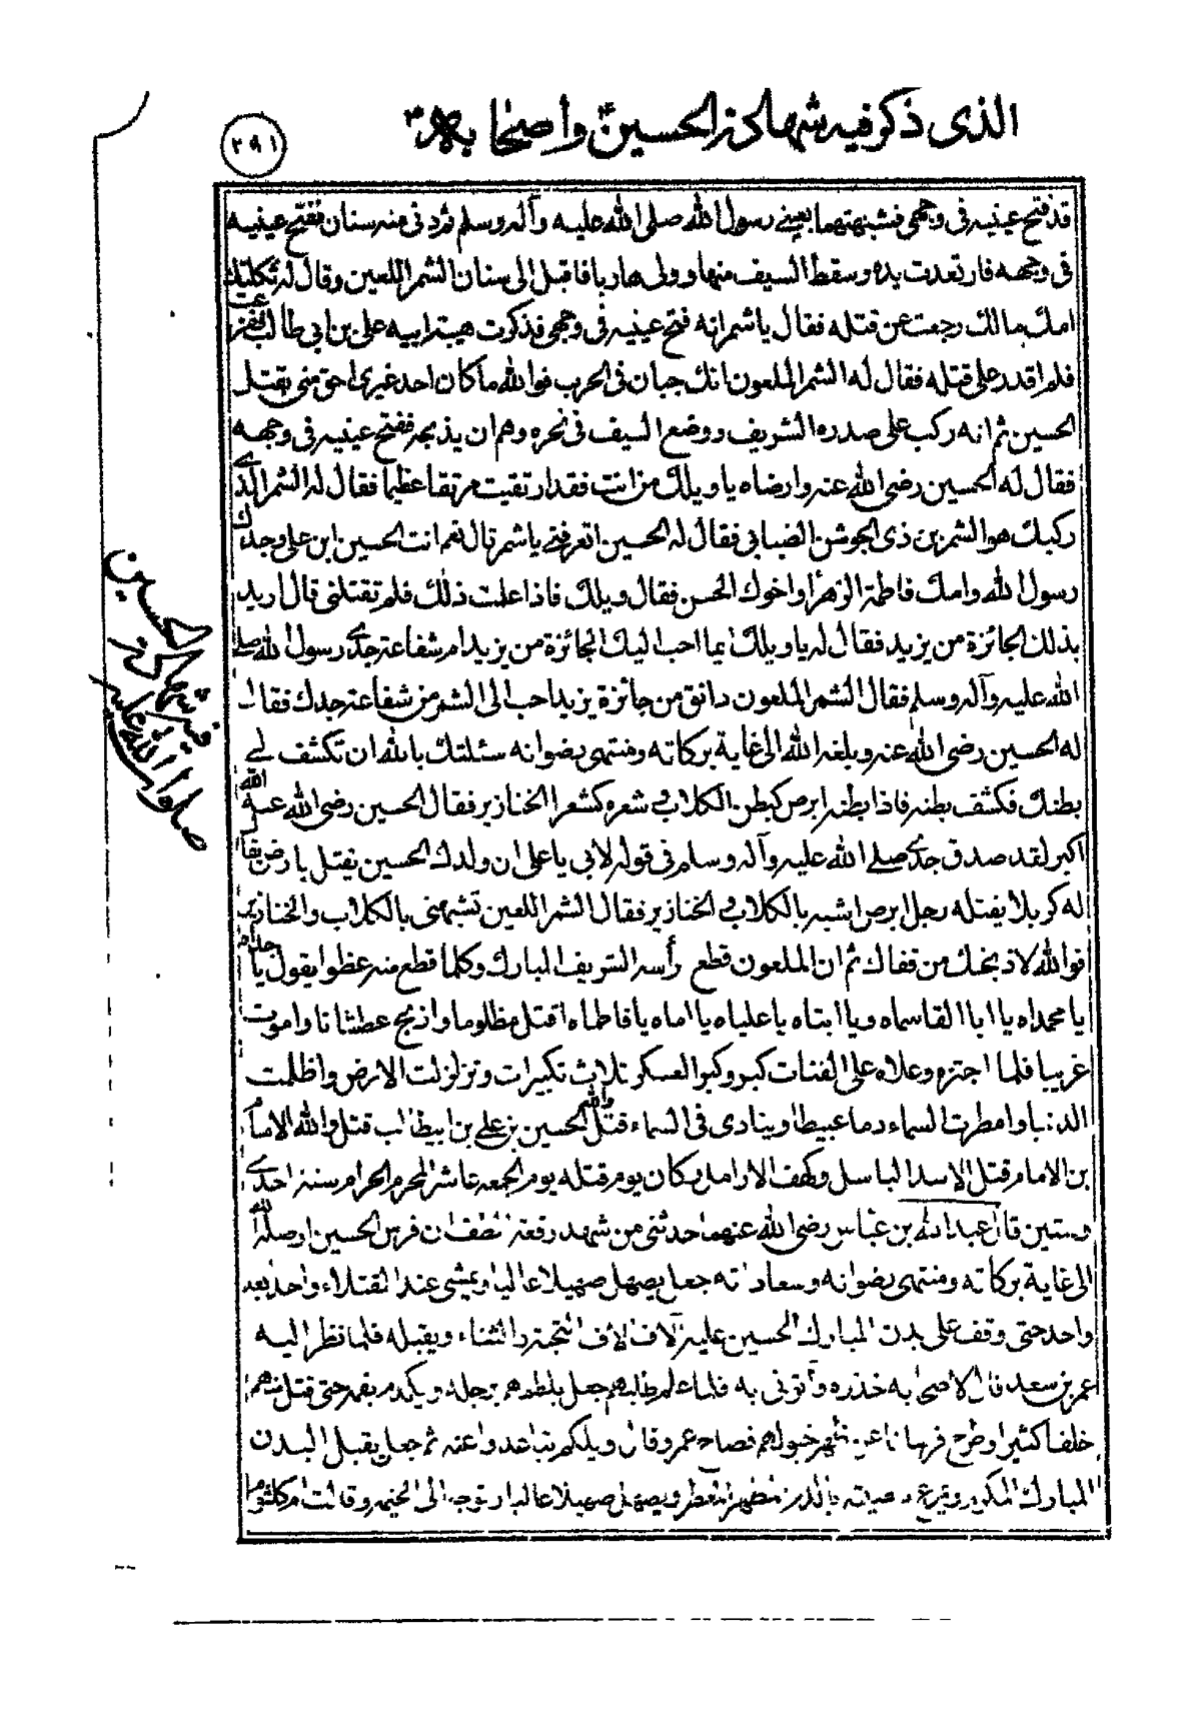 الذى ذكر فيه شهادة الحسين واصحابه
٢٩١
قد فتح عينيه فى وجهى فشبهتهما بعينى رسول الله صلى الله عليه وآله وسلم ثم دنى منه سنان ففتح عينيه
فى وجهه فارتعدت يده وسقط السيف منها وولى هاربا فاقبل الى سنان الشمر اللعين وقال له ثكلتك
امك مالك رجعت عن قتله فقال يا شمر انه فتح عينيه فى وجهى فذكرت هيبة ابيه على بن ابي طالب
فلم اقدر على قتله فقال له الشمر الملعون انك جبان فى الحرب فوالله ما كان احد غيرى احق منى بقتل
الحسين ثم انه ركب على صدره الشريف ووضع السيف فى نحره وهم ان يذبحه ففتح عينيه فى وجهه
فقال له الحسين رضى الله عنه وارضاه يا ويلك من انت فقد ارتقيت مرتقا عظيما فقال له الشمر الذى
ركبك هو الشمر بن ذى الجوشن الضبابى فقال له الحسين اتعرفنى يا شمر قال نعم انت الحسين ابن على وجدك
رسول الله وامك فاطمة الزهراء واخوك الحسن فقال ويلك فاذا علمت ذلك فلم تقتلنى قال اريد
بذلك الجائزة من يزيد فقال له يا ويلك ايما احب اليك الجائزة من يزيد ام شفاعة جدى رسول الله صلى
الله عليه وآله وسلم فقال الشمر الملعون دانق من جائزة يزيد احب الى الشمر من شفاعة جدك فقال
له الحسين رضى الله عنه وبلغه الله الى غاية بركاته ومنتهى رضوانه سئلتك بالله ان تكشف لى
بطنك فكشف بطنه فاذا بطنه ابرص كبطن الكلاب شعره كشعر الخنازير فقال الحسين رضى الله عنه الله
اكبر لقد صدق جدى صلى الله عليه وآله وسلم فى قوله لابى يا على ان ولدك الحسين يقتل بارض يقال
له كربلا يقتله رجل ابرص اشبه بالكلاب والخنازير فقال الشمر اللعين تشبهنى بالكلاب والخنازير
فوالله لاذبحنك من قفاك ثم ان الملعون قطع رأسه الشريف المبارك وكلما قطع منه عظوا يقول يا جداه
يا محمداه يا ابا القاسماه ويا ابتاه يا علياه يا اماه يا فاطماه اقتل مظلوما واذبح عطشانا واموت
غريبا فلما اجتزه وعلاه على القنات كبر وكبر العسكر ثلاث تكبيرات وتزلزلت الارض واظلمت
الدنيا وامطرت السماء دما عبيطا وينادى فى السماء قتل والله الحسين بن على بن ابيطالب قتل والله الامام
بن الامام قتل الاسد الباسل وكهف الارامل وكان يوم قتله يوم الجمعه عاشر المحرم الحرام سنة احدى
وستين قال عبد الله بن عباس رضى الله عنهما حدثنى من شهد وقعة الطف ان فرس الحسين اوصله الله
الى غاية بركاته ومنتهى رضوانه وسعاداته جعل يصهل صهيلا عاليا ويمشى عند القتلاء واحد بعد
واحد حتى وقف على بدن المبارك الحسين عليه آلاف الاف التحية والثناء ويقبله فلما نظر اليه
عمر بن سعد قال لاصحابه خذره وآتونى به فلما علم طالبهم جعل يلطمهم برجله ويكدم بفمه حتى قتل منهم
خلقا كثيرا وطرح فرسانا عن ظهر خيولهم فصاح عمر وقال ويلكم تباعدوا عنه ثم جعل يقبل البدن
المبارك المكرم ويمرغ ناصيته بالدم المطهر المعطر ويصهل صهيلا عاليا وتوجه الى الخيم وقالت ام كلثوم
فيه شهادة الحسين
صلوات الله عليه